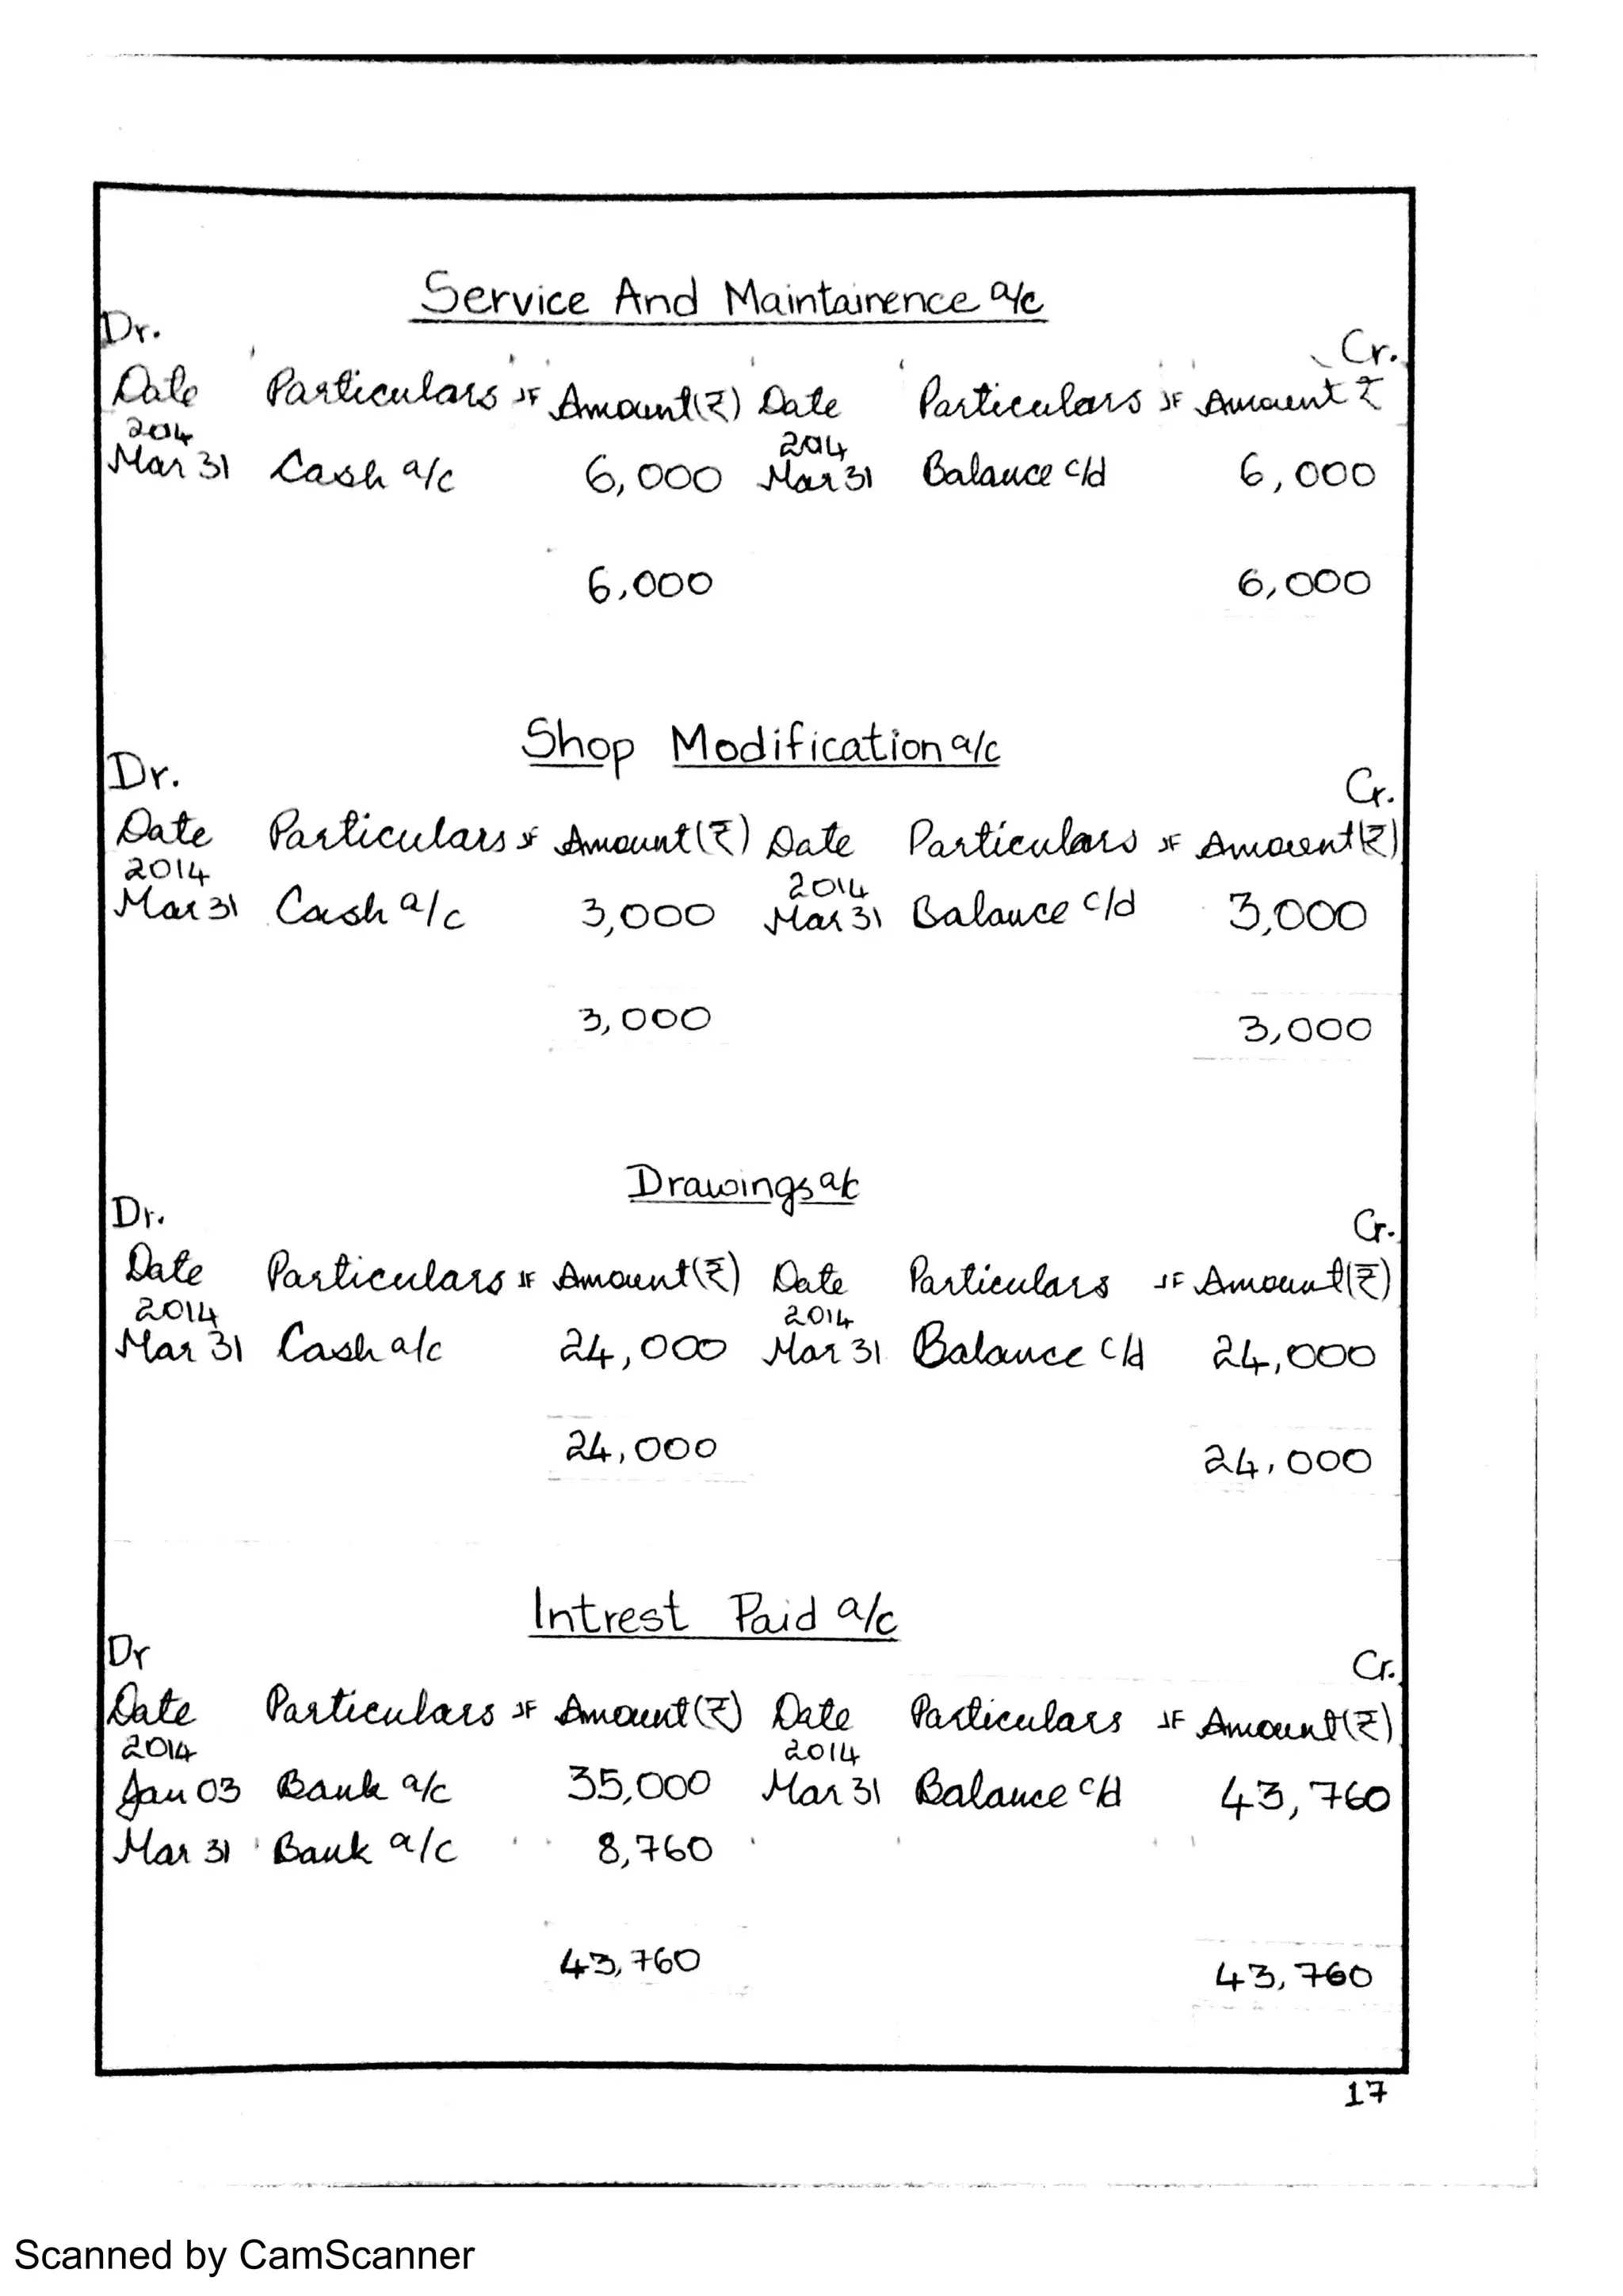 Service And Maintainence a/c
Dr.
Cr.
Date Particulars JF Amount(₹) Date Particulars JF Amount ₹
2014 2014
Mar 31 Cash a/c 6,000 Mar 31 Balance c/d 6,000
6,000 6,000
Shop Modification a/c
Dr.
Cr.
Date Particulars JF Amount(₹) Date Particulars JF Amount(₹)
2014 2014
Mar 31 Cash a/c 3,000 Mar 31 Balance c/d 3,000
3,000 3,000
Drawings a/c
Dr.
Cr.
Date Particulars JF Amount(₹) Date Particulars JF Amount(₹)
2014 2014
Mar 31 Cash a/c 24,000 Mar 31 Balance c/d 24,000
24,000 24,000
Intrest Paid a/c
Dr
Cr.
Date Particulars JF Amount(₹) Date Particulars JF Amount(₹)
2014 2014
Jan 03 Bank a/c 35,000 Mar 31 Balance c/d 43,760
Mar 31 Bank a/c 8,760
43,760 43,760
17
Scanned by CamScanner